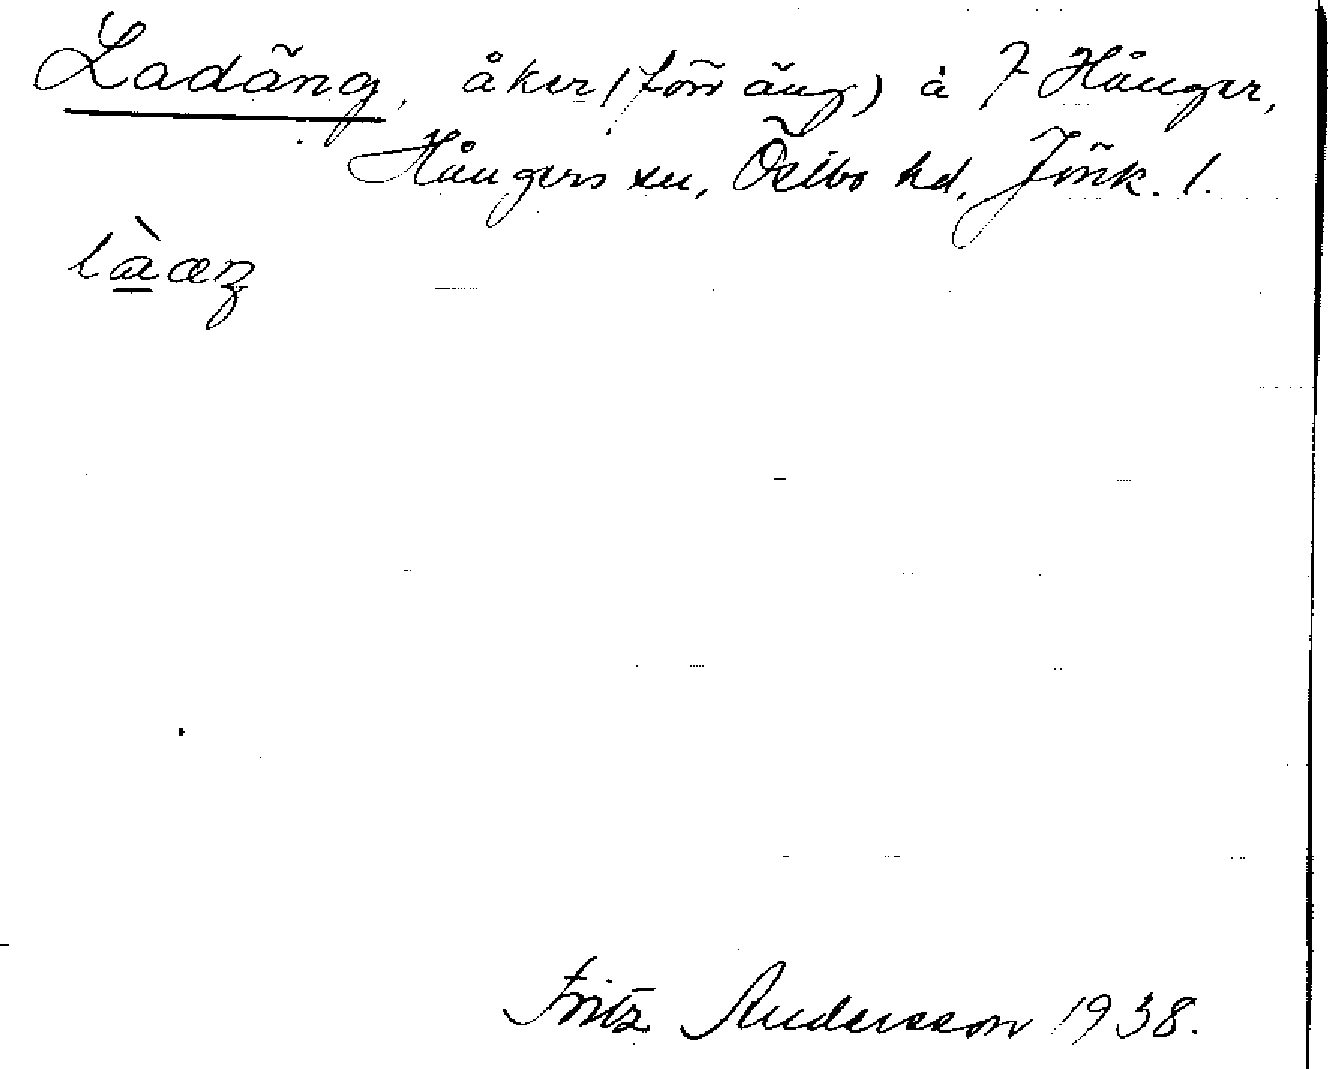 Ladäng, åker (förr äng) å 7 Hånger,
Hångers sn, Östbo hd, Jönk. l.
làæŋ
Fritz Andersson 1938.